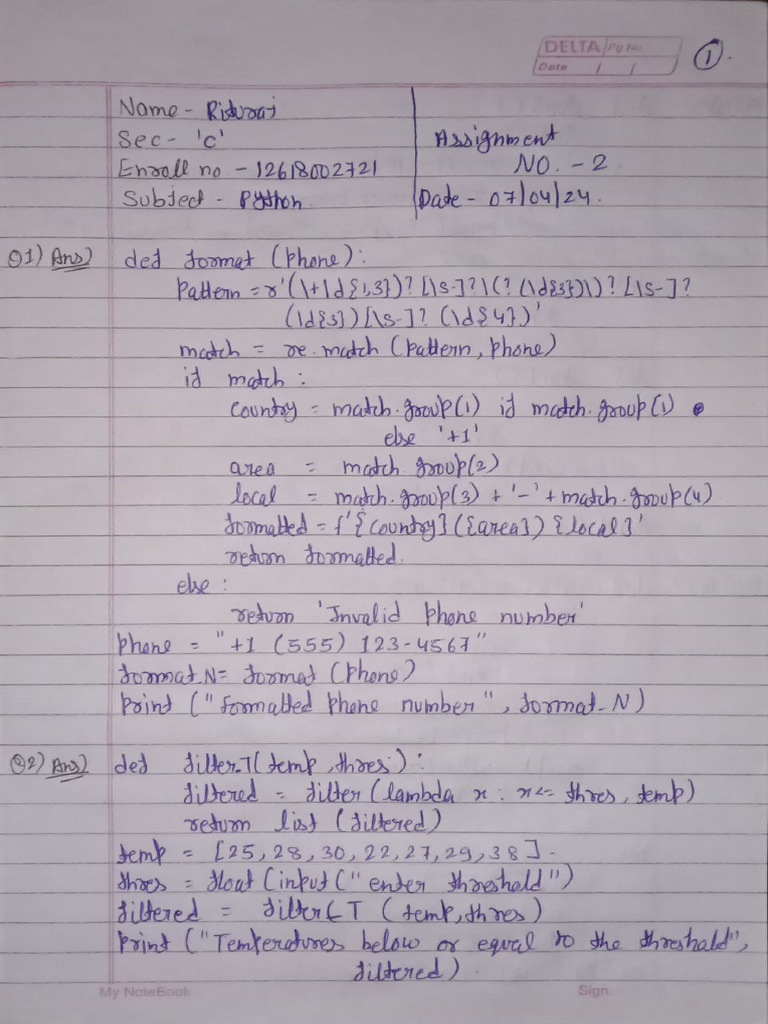 DELTA Pg No.
Date / /
1.
Name - Rituraj
Sec - 'C'
Enroll no - 12618002721
Subject - Python
Assignment
NO. - 2
Date - 07/04/24.
Q1) Ans) def format (phone):
pattern = r'(\+\d{1,3})?[\s-]?\(?(\d{3})\)?[\s-]?
(\d{3})[\s-]?(\d{4})'
match = re.match (pattern, phone)
if match :
country = match.group(1) if match.group(1)
else '+1'
area = match.group(2)
local = match.group(3) + '-' + match.group(4)
formatted = f'{country} ({area}) {local}'
return formatted.
else :
return 'Invalid phone number'
phone = "+1 (555) 123-4567"
format_N = format (phone)
print ("formatted phone number", format_N)
Q2) Ans) def filter_T(temp, thres):
filtered = filter (lambda x : x <= thres, temp)
return list (filtered)
temp = [25, 28, 30, 22, 27, 29, 38].
thres = float (input ("enter threshold")
filtered = filter_T (temp, thres)
print ("Temperatures below or equal to the threshold",
filtered).
My NoteBook
Sign.